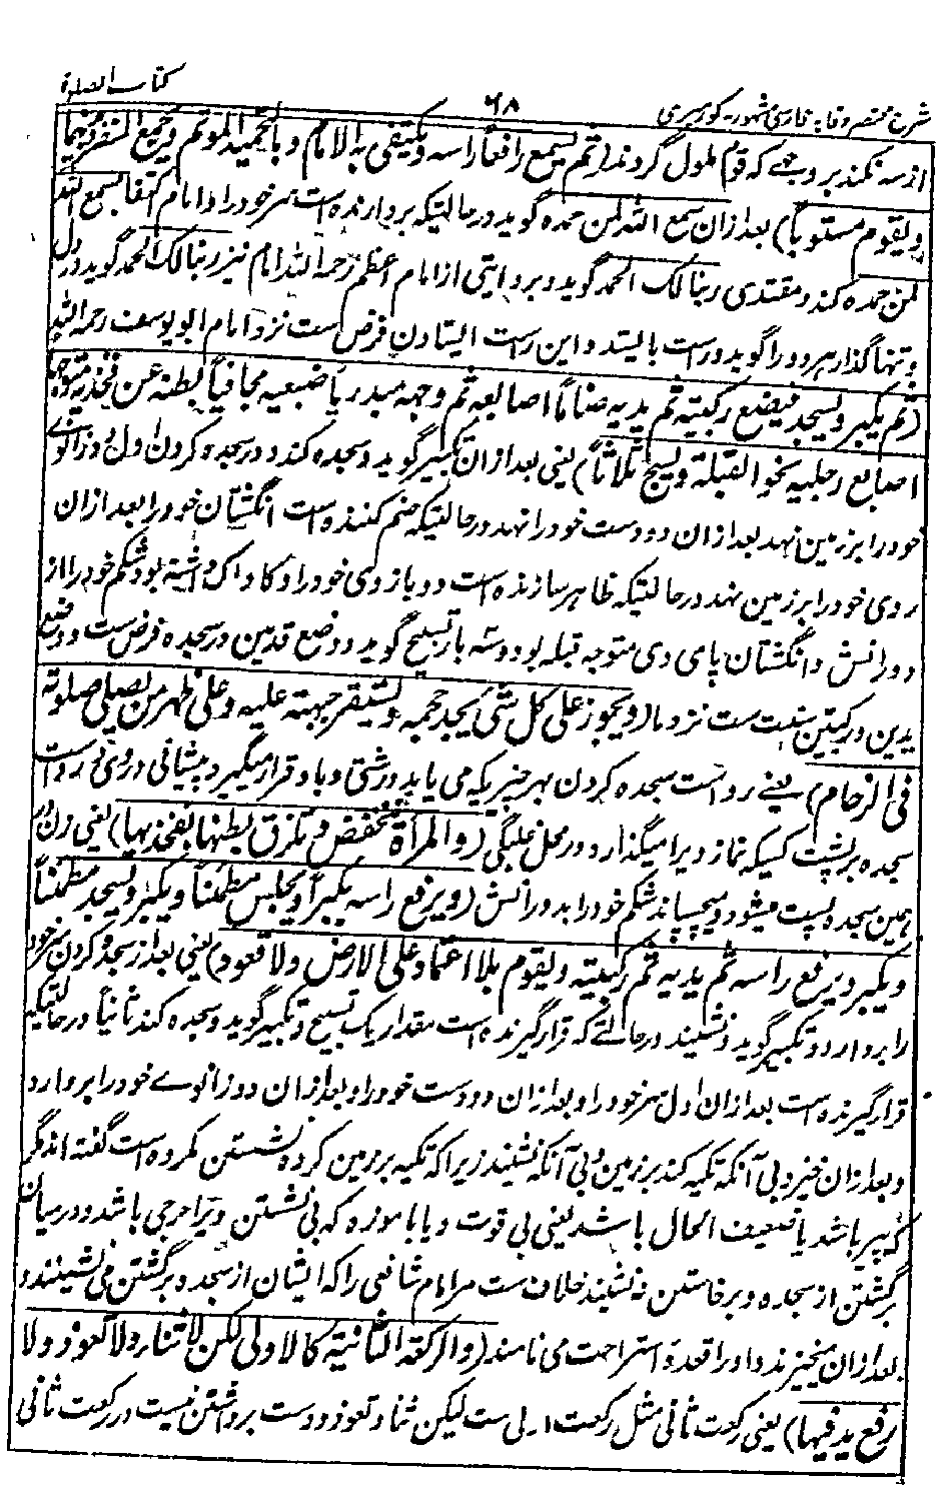 کتاب الصلوة
۶۸
شرح مختصر وقایه فارسی مشهور به کورسیری
از سه نکند بر وجهی که قوم ملول گردند (ثم یسمع رافعاً راسه ویکتفی به الامام و بالتحمید الموتم ویجمع المنفرد بینهما
ویقوم مستویاً) بعد ازان سمع الله لمن حمده گوید در حالتیکه بردارنده است سر خود را و امام اکتفا بسمع الله
لمن حمده کند و مقتدی ربنا لک الحمد گوید و بروایتی از امام اعظم رحمه الله امام نیز ربنا لک الحمد گوید در دل
و تنها گذار هر دو را گوید و راست بایستد و این راست ایستادن فرض ست نزد امام ابو یوسف رحمه الله
(ثم یکبر ویسجد فیضع رکبتیه ثم یدیه ضاماً اصابعه ثم وجهه مبدریاً ضبعیه مجافیاً بطنه عن فخذیه متوجهاً
اصابع رجلیه نحو القبلة ویسبح ثلاثاً) یعنی بعد ازان تکبیر گوید و سجده کند و در سجده کردن اول دو زانوے
خود را بر زمین نهد بعد ازان دو دست خود را نهد در حالتیکه ضم کننده است انگشتان خود را بعد ازان
روی خود را بر زمین نهد در حالتیکه ظاهر سازنده است دو بازوی خود را و کاواک داشته بود شکم خود را از
دو رانش و انگشتان پای وی متوجه قبله بود و سه بار تسبیح گوید و وضع قدمین در سجده فرض ست و وضع
یدین و رکبتین سنت ست نزد ما (ویجوز علی کل شئ یجد حجمه ویستقر جبهته علیه وعلی ظهر من یصلی صلوته
فی الزحام) یعنے رواست سجده کردن بهر چیزیکه می یابد درشتی و باو قرار میگیرد پیشانی در وی رواست
سجده بر پشت کسیکه نماز ویرا میگذارد در محل غلبگی (والمرأة تنخفض وتلزق بطنها بفخذیها) یعنی زن در
همین سجده پست میشود و میچسپاند شکم خود را بدو رانش (ویرفع راسه مکبراً ویجلس مطمئناً ویکبر ویسجد مطمئناً
ویکبر ویرفع راسه ثم یدیه ثم رکبتیه ویقوم بلا اعتماد علی الارض ولا قعود) یعنی بعد از سجده کردن سر خود
را بردارد و تکبیر گوید و نشیند در حالتے که قرار گیرنده است مقدار یک تسبیح و تکبیر گوید و سجده کند ثانیاً در حالتیکه
قرار گیرنده است بعد ازان اول سر خود را و بعد ازان دو دست خود را و بعد ازان دو زانوے خود را بردارد
و بعد ازان خیزد بی آنکه تکیه کند بر زمین و بی آنکه نشیند زیرا که تکیه بر زمین کرده نشستن مکروه است گفته اند مگر
که پیر باشد یا ضعیف الحال باشد یعنی بی قوت و یا با موزه که بی نشستن ویرا حرجی باشد و درمیان
برگشتن از سجده و برخاستن نه نشیند خلاف ست مر امام شافعی را که ایشان از سجده و برگشتن می نشینند و
بعد ازان میخیزند و او را قعده استراحت می نامند (والرکعة الثانیة کالاولی لکن لا ثناء ولا تعوذ ولا
رفع ید فیها) یعنی رکعت ثانی مثل رکعت اولی ست لیکن ثنا و تعوذ و دست برداشتن نیست در رکعت ثانی